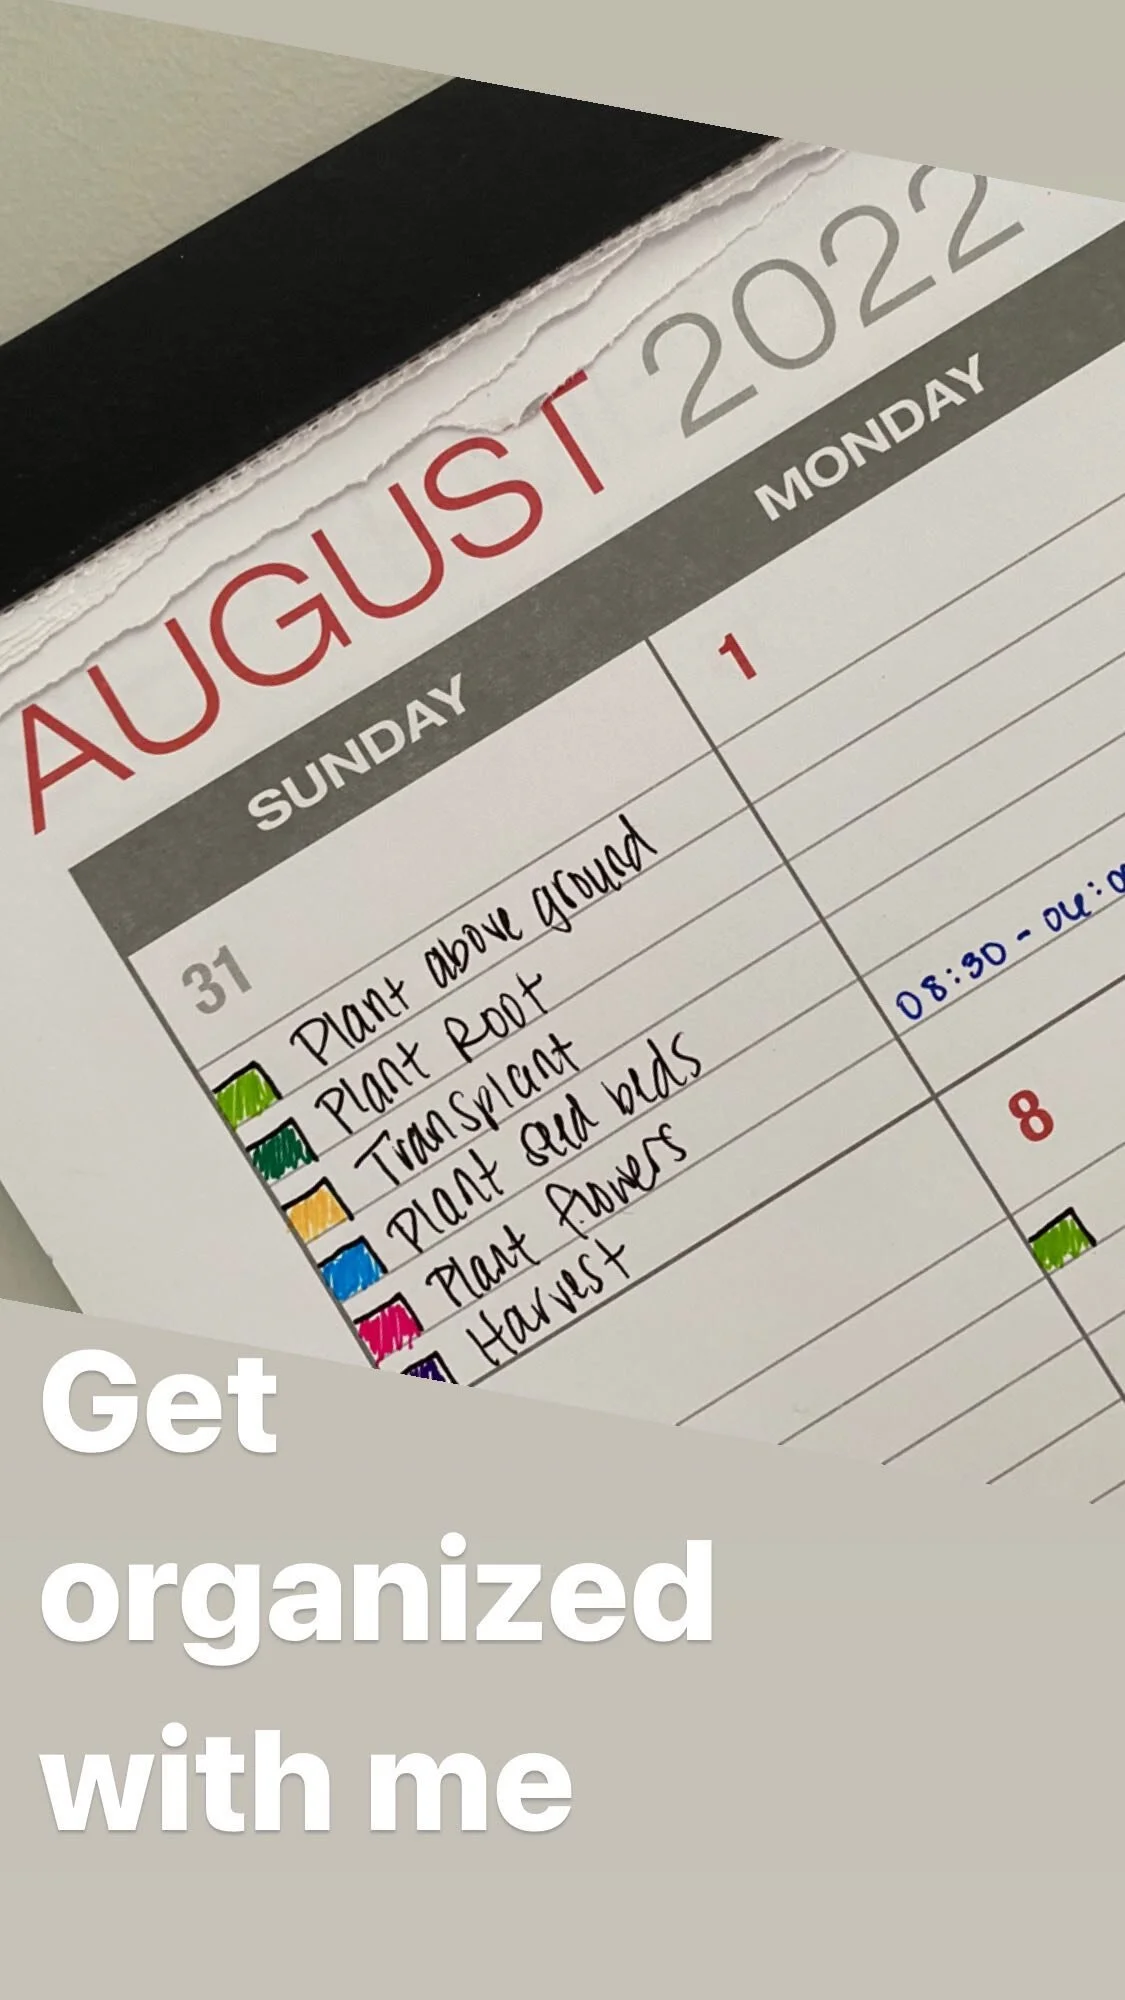 AUGUST 2022
SUNDAY MONDAY
31
1
Plant above ground
Plant Root
Transplant
Plant seed beds
Plant flowers
Harvest
08:30 - 04:0
8
Get
organized
with me